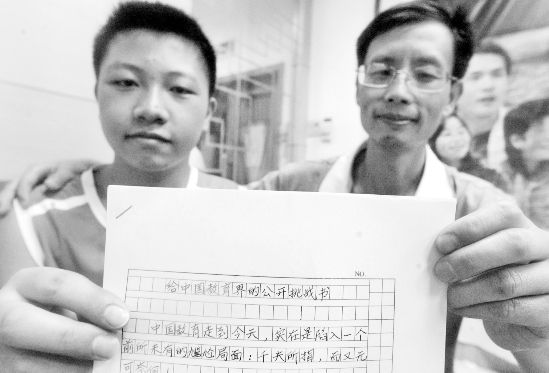 NO.
给中国教育界的公开挑战书
中国教育走到今天，实在是陷入一个
前所未有的尴尬局面：千夫所指，而又无
可奈何